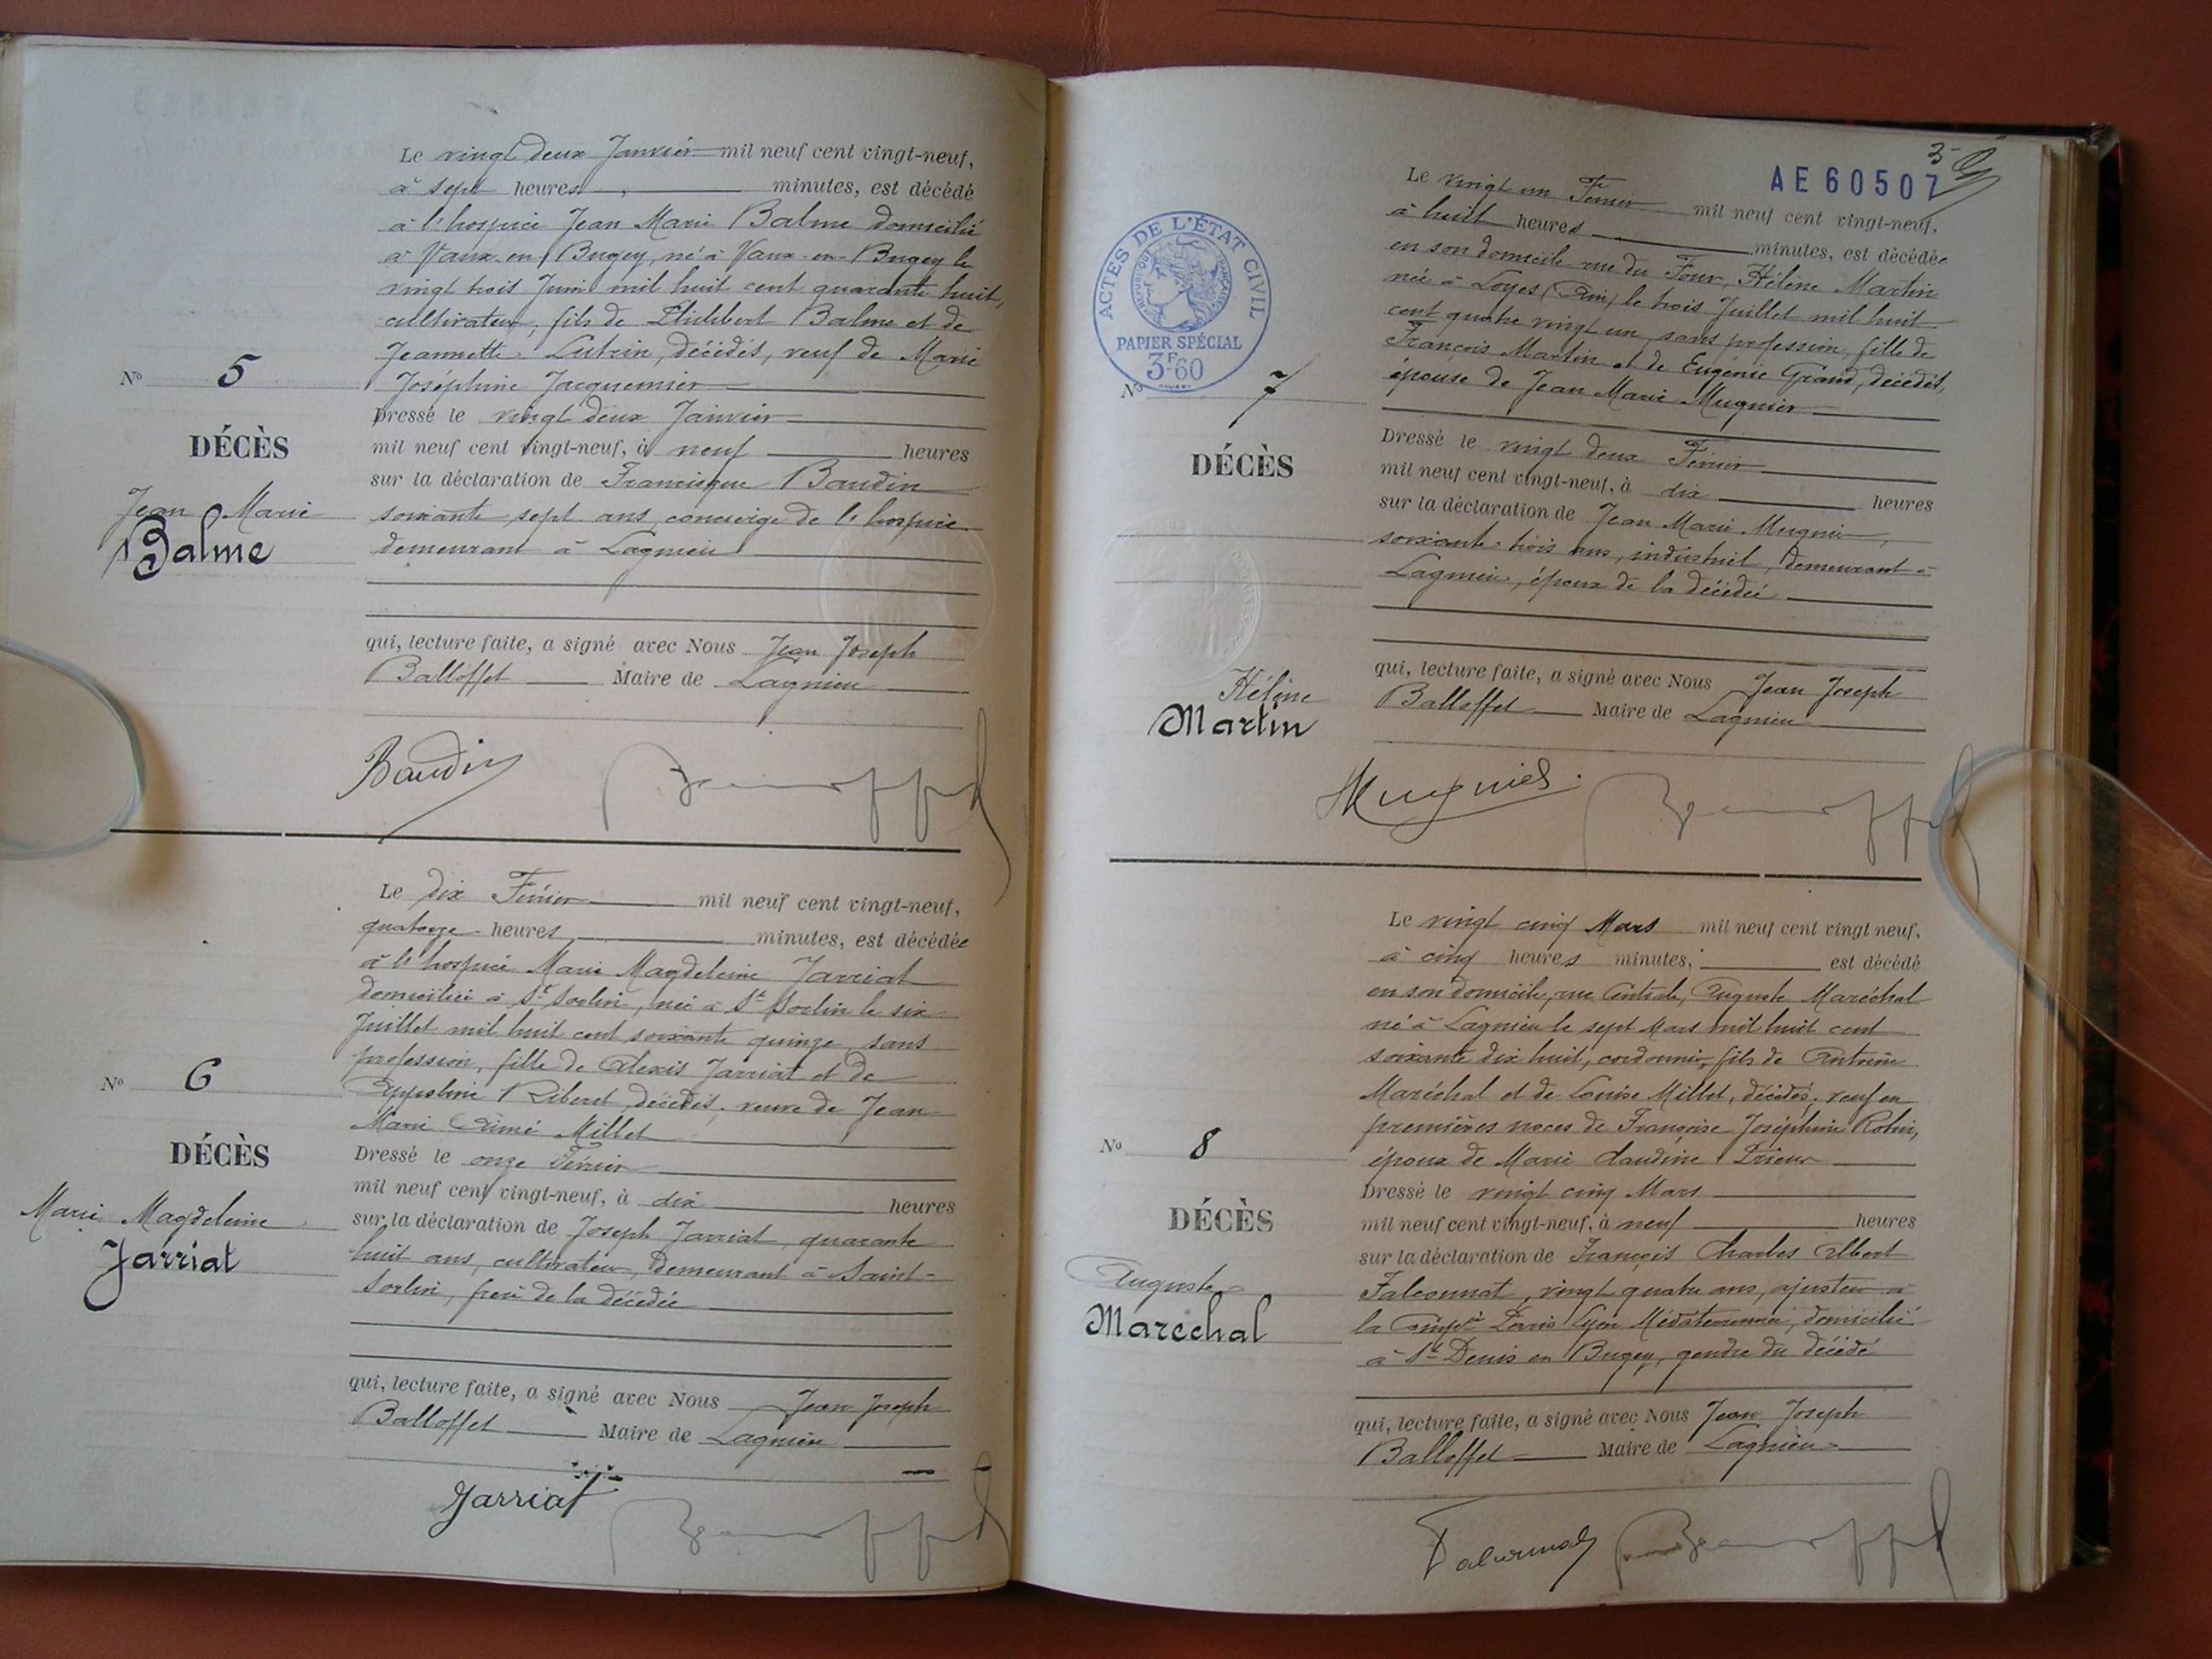 Le vingt deux Janvier mil neuf cent vingt-neuf,
à sept heures, minutes, est décédé
à l'hospice Jean Marie Balme domicilié
à Vaux-en-Bugey, né à Vaux-en-Bugey le
vingt trois Juin mil huit cent quarante huit,
cultivateur, fils de Philibert Balme et de
Jeannette Lutrin, décédés, veuf de Marie
Joséphine Jacquemier
Dressé le vingt deux Janvier
mil neuf cent vingt-neuf, à neuf heures
sur la déclaration de Francisque Baudin
soixante sept ans, concierge de l'hospice
demeurant à Lagnieu
qui, lecture faite, a signé avec Nous Jean Joseph
Balloffet Maire de Lagnieu
Baudin
No 5
DÉCÈS
Jean Marie
Balme
Le dix Février mil neuf cent vingt-neuf,
quatorze heures minutes, est décédée
à l'hospice Marie Magdeleine Jarriat
domiciliée à St Sorlin, née à St Sorlin le six
Juillet mil huit cent soixante quinze, sans
profession, fille de Alexis Jarriat et de
Appoline Riberet, décédés, veuve de Jean
Marie Aimé Millet
Dressé le onze Février
mil neuf cent vingt-neuf, à dix heures
sur la déclaration de Joseph Jarriat, quarante
huit ans, cultivateur, demeurant à Saint-
Sorlin, frère de la décédée
qui, lecture faite, a signé avec Nous Jean Joseph
Balloffet Maire de Lagnieu
Jarriat
No 6
DÉCÈS
Marie Magdeleine
Jarriat
AE 60507
ACTES DE L'ÉTAT CIVIL
PAPIER SPÉCIAL
3F60
Le vingt un Février mil neuf cent vingt-neuf,
à huit heures minutes, est décédée
en son domicile rue du Four, Hélène Martin
née à Loyes (Ain) le trois Juillet mil huit
cent quatre vingt un, sans profession, fille de
François Martin et de Eugénie Grand, décédés,
épouse de Jean Marie Mugnier
Dressé le vingt deux Février
mil neuf cent vingt-neuf, à dix heures
sur la déclaration de Jean Marie Mugnier,
soixante-trois ans, industriel, demeurant à
Lagnieu, époux de la décédée
qui, lecture faite, a signé avec Nous Jean Joseph
Balloffet Maire de Lagnieu
Mugnier
No 7
DÉCÈS
Hélène
Martin
Le vingt cinq Mars mil neuf cent vingt neuf,
à cinq heures minutes, est décédé
en son domicile, rue Centrale, Auguste Maréchal
né à Lagnieu le sept Mars mil huit cent
soixante dix huit, cordonnier, fils de Antoine
Maréchal et de Louise Millet, décédés, veuf en
premières noces de Françoise Joséphine Robin,
époux de Marie Claudine Prieur
Dressé le vingt cinq Mars
mil neuf cent vingt-neuf, à neuf heures
sur la déclaration de François Charles Albert
Falconnat, vingt quatre ans, ajusteur à
la Compie Paris Lyon Méditerranée, domicilié
à St Denis en Bugey, gendre du décédé
qui, lecture faite, a signé avec Nous Jean Joseph
Balloffet Maire de Lagnieu
Falconnat
No 8
DÉCÈS
Auguste
Marechal